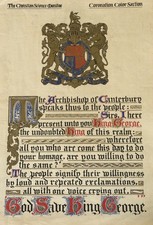 The Christian Science Monitor Coronation Color Section
The Archbishop of Canterbury
speaks thus to the people:
"Sirs, I here
present unto you King George,
the undoubted King of this realm;
wherefore
all you who are come this day to
do your homage, are you willing
to do the same?"
The people signify their willingness
by loud and repeated acclamations,
all with one voice crying out,
God Save King George.